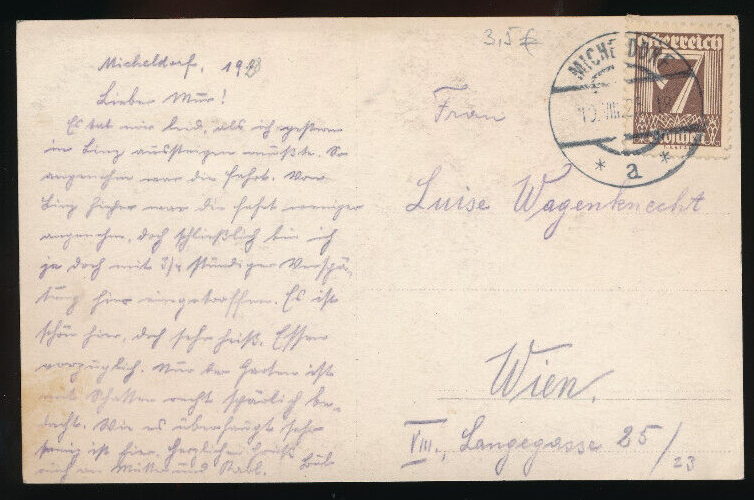 Micheldorf, 192
Lieber Mur!
Es tat mir leid, als ich gestern
in Linz aussteigen mußte. So
angenehm war die Fahrt. Von
Linz hieher war die Fahrt weniger
angenehm, doch schließlich bin ich
ja doch mit 3/4 stündiger Verspä-
tung hier eingetroffen. Es ist
schön hier, doch sehr heiß. Essen
vorzüglich. Nur der Garten ist
mit Schatten recht spärlich be-
dacht. Wie es überhaupt sehr
ist hier. Herzlichen Gruß
auch an Mutter und Karl.
3,5 €
MICHELDORF
19. VIII. 2
* a *
Österreich
7
Groschen
Frau
Luise Wagenknecht
Wien,
VIII., Langegasse 25/23